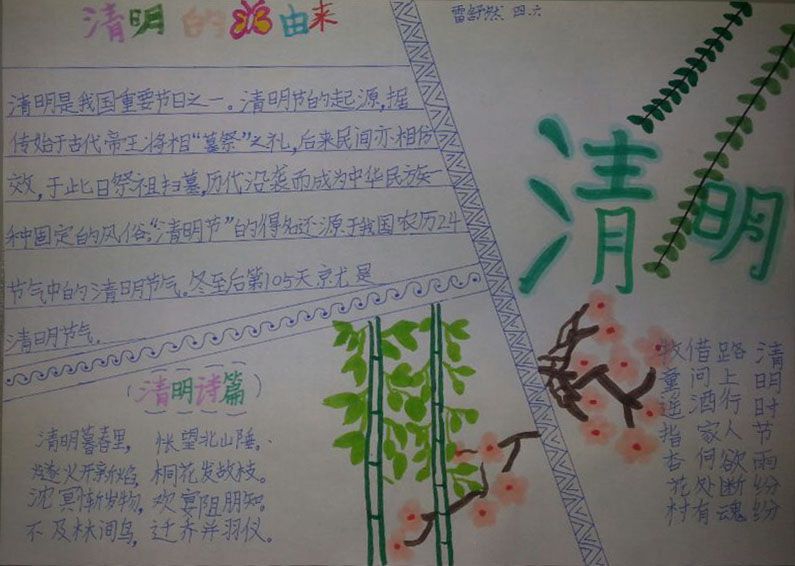 清明的由来
清明是我国重要节日之一。清明节的起源,据
传始于古代帝王将相“墓祭”之礼,后来民间亦相仿
效,于此日祭祖扫墓,历代沿袭而成为中华民族一
种固定的风俗。“清明节”的得名还源于我国农历24
节气中的清明节气。冬至后第105天就是
清明节气.
清明诗篇
清明暮春里, 怅望北山陲。
燧火开新焰, 桐花发故枝。
沈冥惭岁物, 欢宴阻朋知。
不及林间鸟, 迁乔并羽仪。
雷舒然 四.六
清明
清明时节雨纷纷
路上行人欲断魂
借问酒家何处有
牧童遥指杏花村